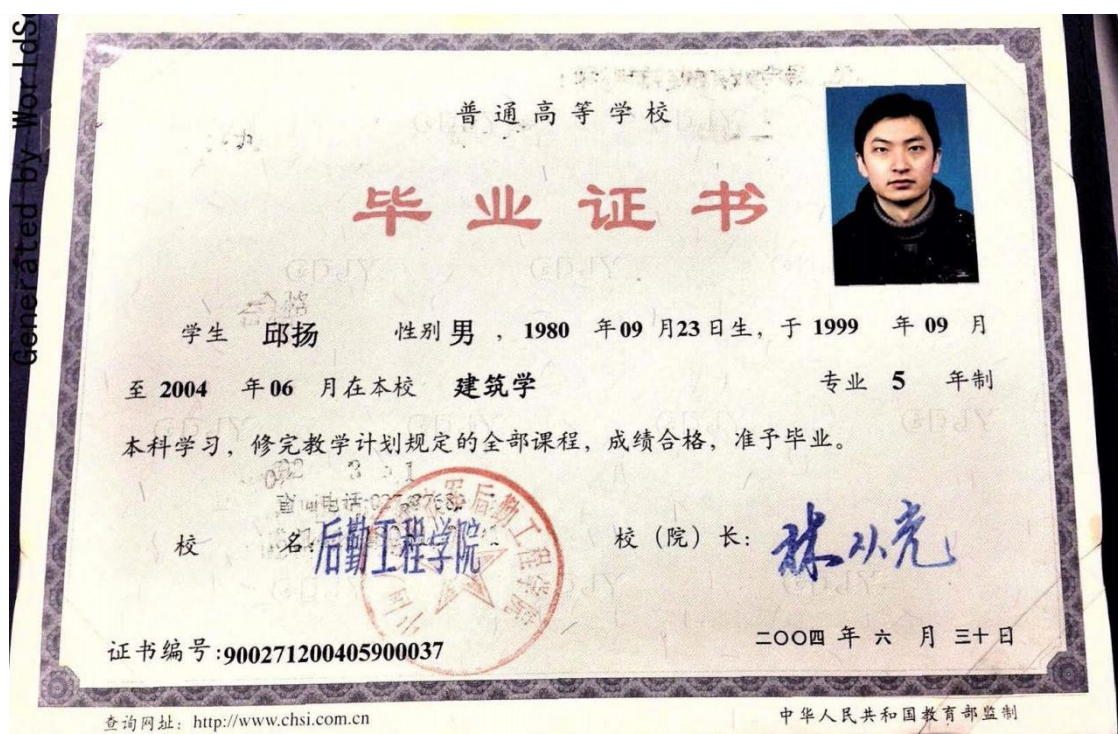 Generated by WorldSc
普通高等学校
毕业证书
学生 邱扬 性别 男 ，1980 年 09 月 23 日生，于 1999 年 09 月
至 2004 年 06 月在本校 建筑学 专业 5 年制
本科学习，修完教学计划规定的全部课程，成绩合格，准予毕业。
校 名：后勤工程学院 校（院）长：林从亮
证书编号:900271200405900037 二〇〇四 年 六 月 三十 日
查询网址：http://www.chsi.com.cn 中华人民共和国教育部监制